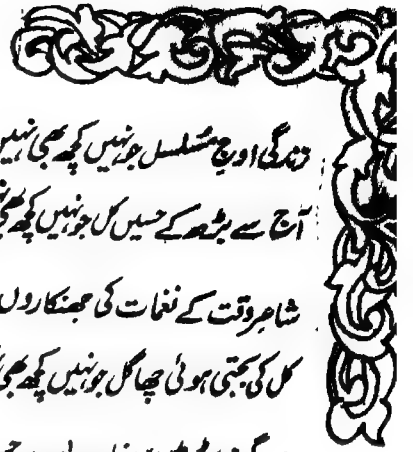 زندگی اوجِ مسلسل جو نہیں کچھ بھی نہیں
آج سے بڑھ کے حسیں کل جو نہیں کچھ بھی
شاھرِ وقت کے نغمات کی جھنکاروں
کل کی بجتی ہوئی چھاگل جو نہیں کچھ بھی